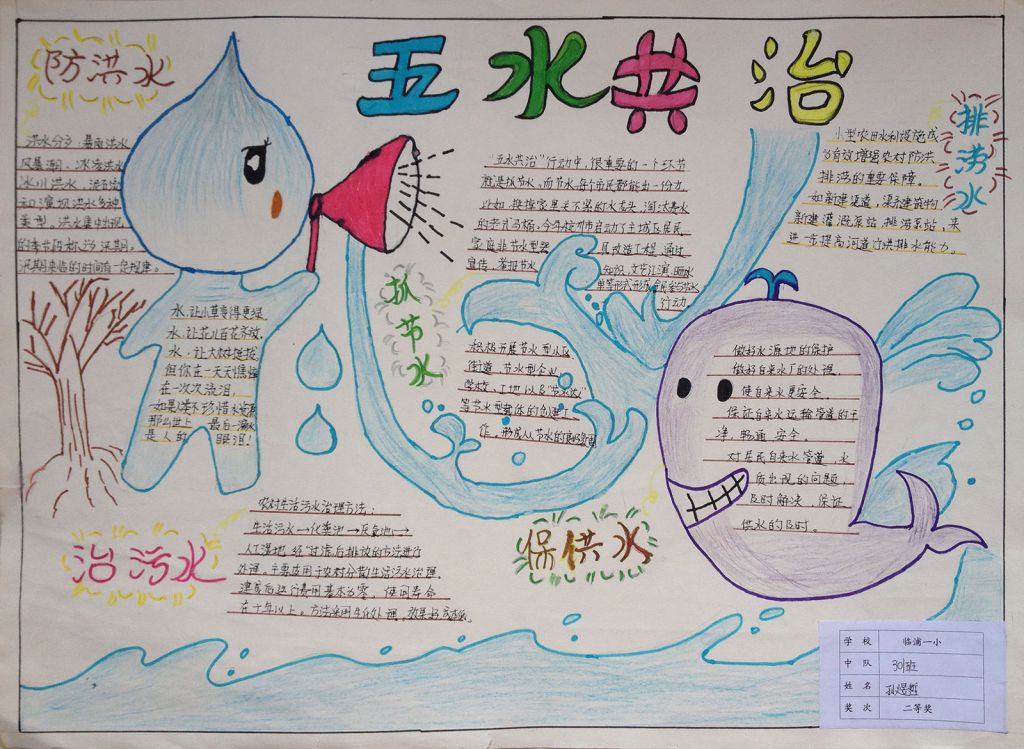 五水共治
防洪水
洪水分为:暴雨洪水
风暴潮、冰凌洪水
冰川洪水、
洪水多种
类型。洪水集中出现
的季节段称为汛期,
汛期来临的时间有一定规律。
水,让小草变得更绿
水,让花儿百花齐放.
水,让大树挺拔,
但你在一天天憔悴
在一次次流泪,
如果人类不珍惜水资源
那么世上 最后一滴水
是人的 眼泪!
抓节水
“五水共治”行动中,很重要的一个环节
就是抓节水,而节水,每个市民都能出一份力,
比如,换掉家里关不紧的水龙头,淘汰费水
的老式马桶,今年杭州市启动了主城区居民
家庭非节水型器 具改造工程,通过
宣传、普及节水 知识,文艺汇演,
行动。
积极开展节水型社区
街道、节水型企业
学校、工地以及“节水达人”
等节水型载体的创建工
作,形成人人节水的良好氛围
排涝水
小型农田水利设施成
为有效增强农村防洪
排涝的重要保障。
如新建渠道,渠系建筑物
新建灌溉泵站,排涝泵站,来
进一步提高河道行洪排水能力。
保供水
做好水源地的保护
做好自来水厂的处理,
使自来水更安全。
保证自来水运输管道的干
净,畅通,安全。
对居民自来水管道,水
质出现的问题,
及时解决,保证
供水的及时。
治污水
农村生活污水治理方法:
生活污水→化粪池→厌氧池→
人工湿地,经过滤后排放的方法进行
处理。主要适用于农村分散生活污水治理.
建成后运行费用基本为零,使用寿命
在十年以上。方法采用生化处理,效果好
学校 临浦一小
中队 301班
姓名 孙煜哲
奖次 二等奖